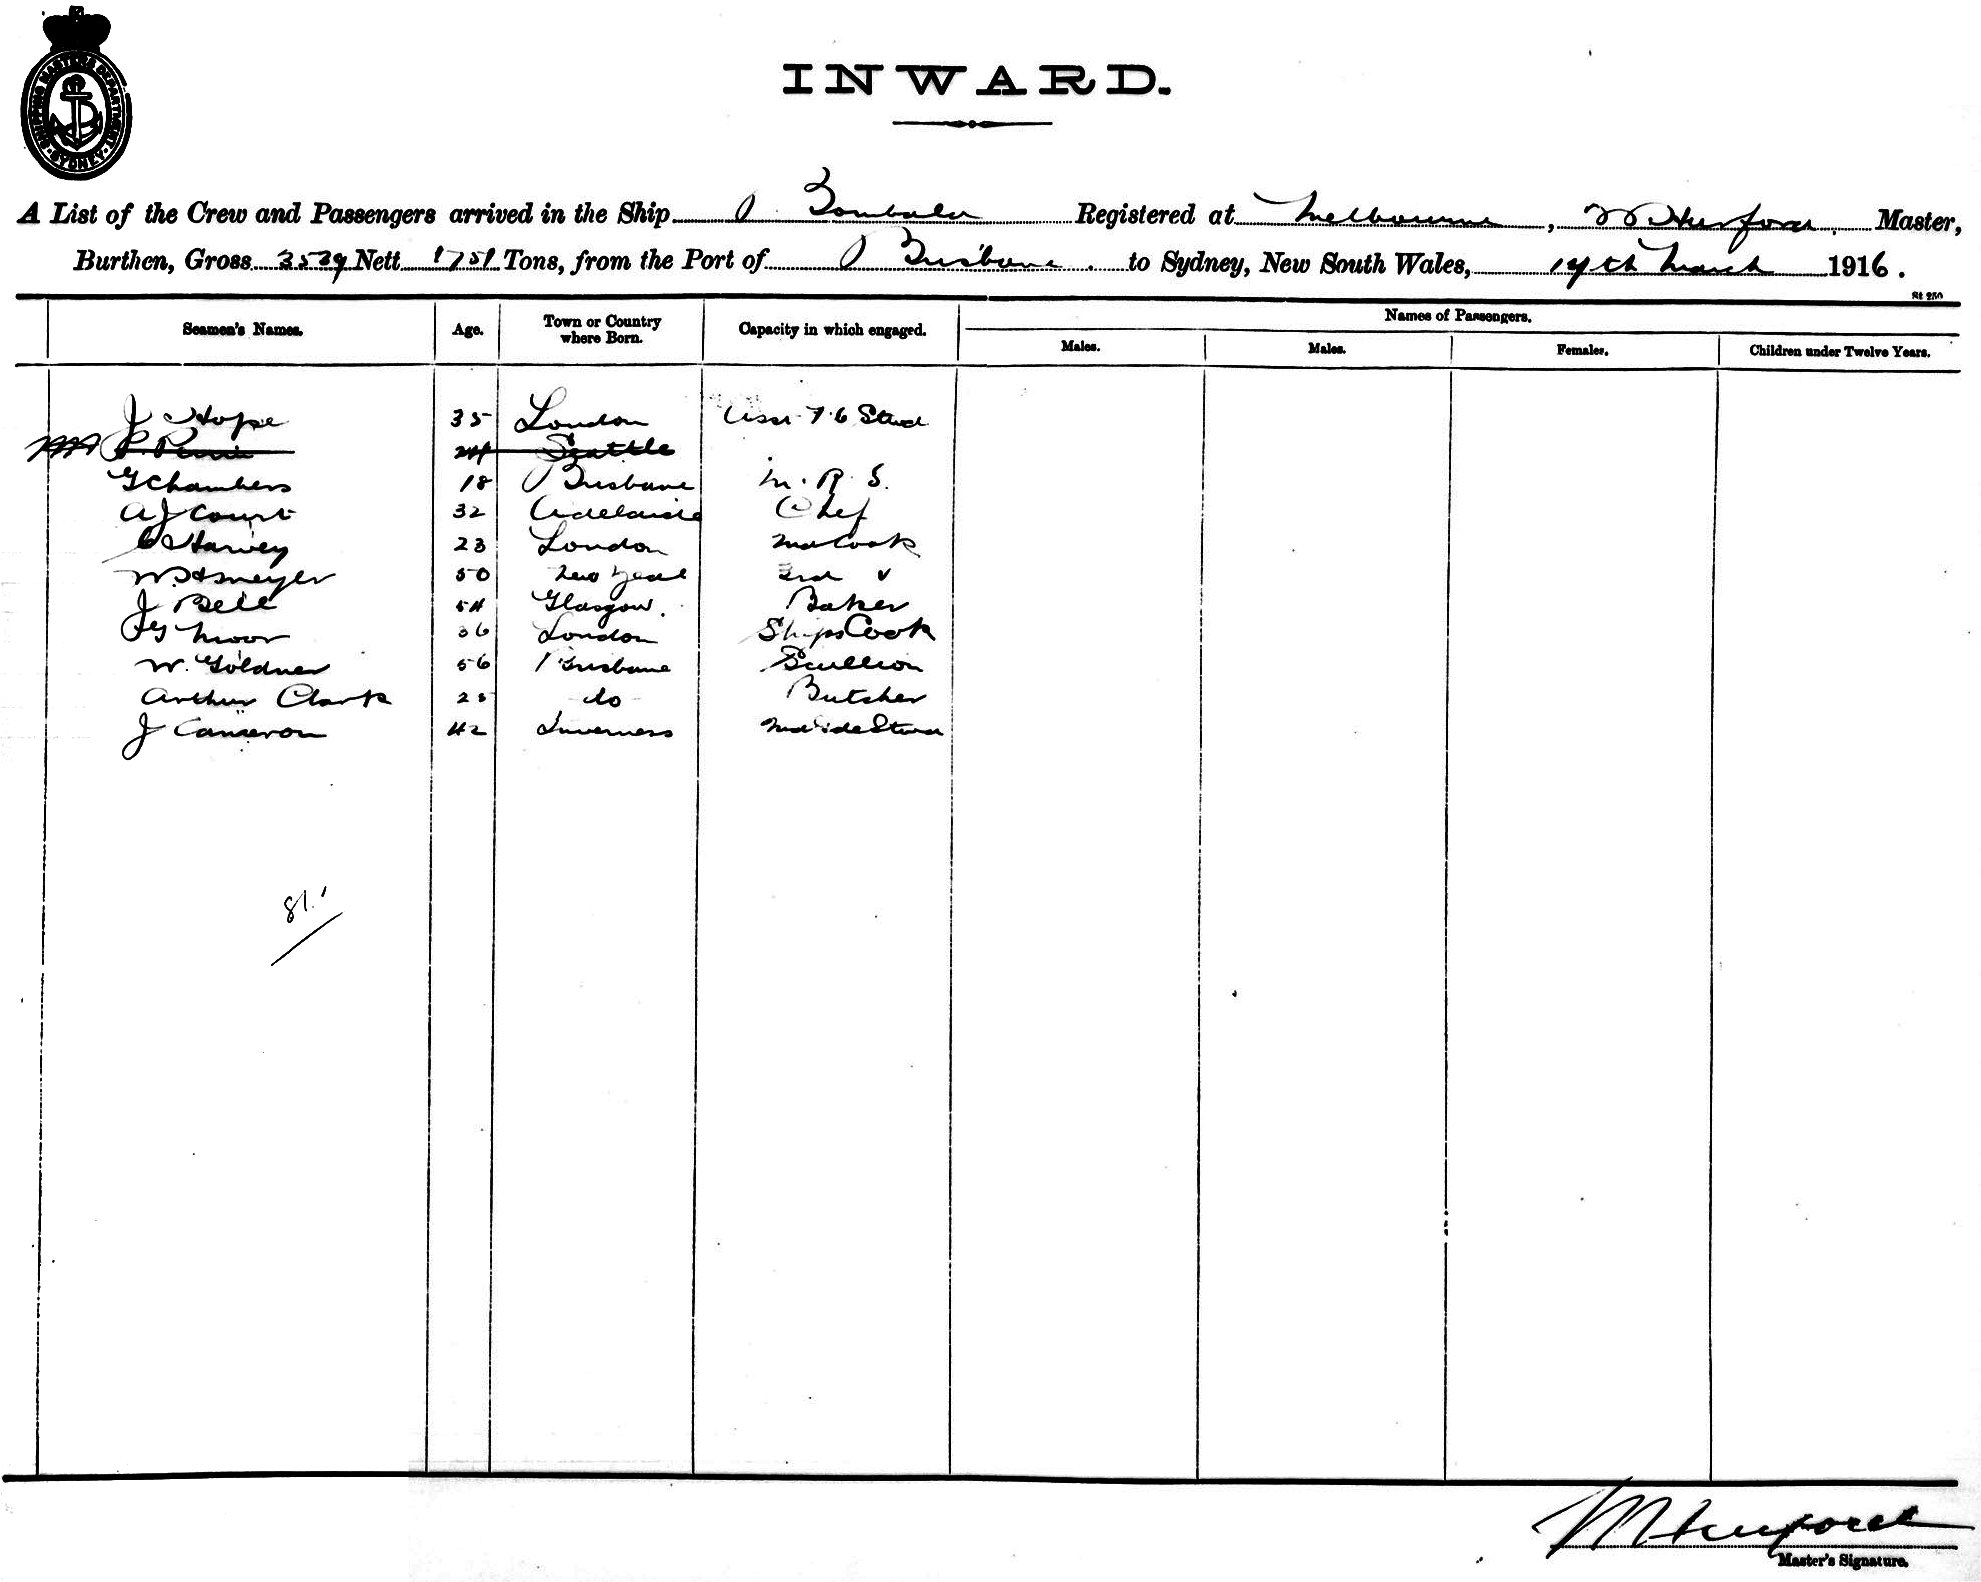 SHIPPING MASTERS DEPARTMENT
SYDNEY
INWARD.
A List of the Crew and Passengers arrived in the Ship Bombala Registered at Melbourne, Hurford Master,
Burthen, Gross 3539 Nett 1751 Tons, from the Port of Brisbane to Sydney, New South Wales, 14th March 1916.
St 250
Seamen's Names. Age. Town or Country where Born. Capacity in which engaged. Names of Passengers.
Males. Males. Females. Children under Twelve Years.
J Hope 35 London Asst F.C Stwd
24 Seattle
G Chambers 18 Brisbane M. R. S.
A J Court 32 Adelaide Chef
C Harvey 23 London 2nd Cook
50 New Zeal 3rd
J Bell 54 Glasgow. Baker
Moor 36 London Ships Cook
W. Goldner 56 Brisbane Scullion
Arthur Clark 25 do Butcher
J Cameron 42 Inverness Stwd
81.
M Hurford
Master's Signature.